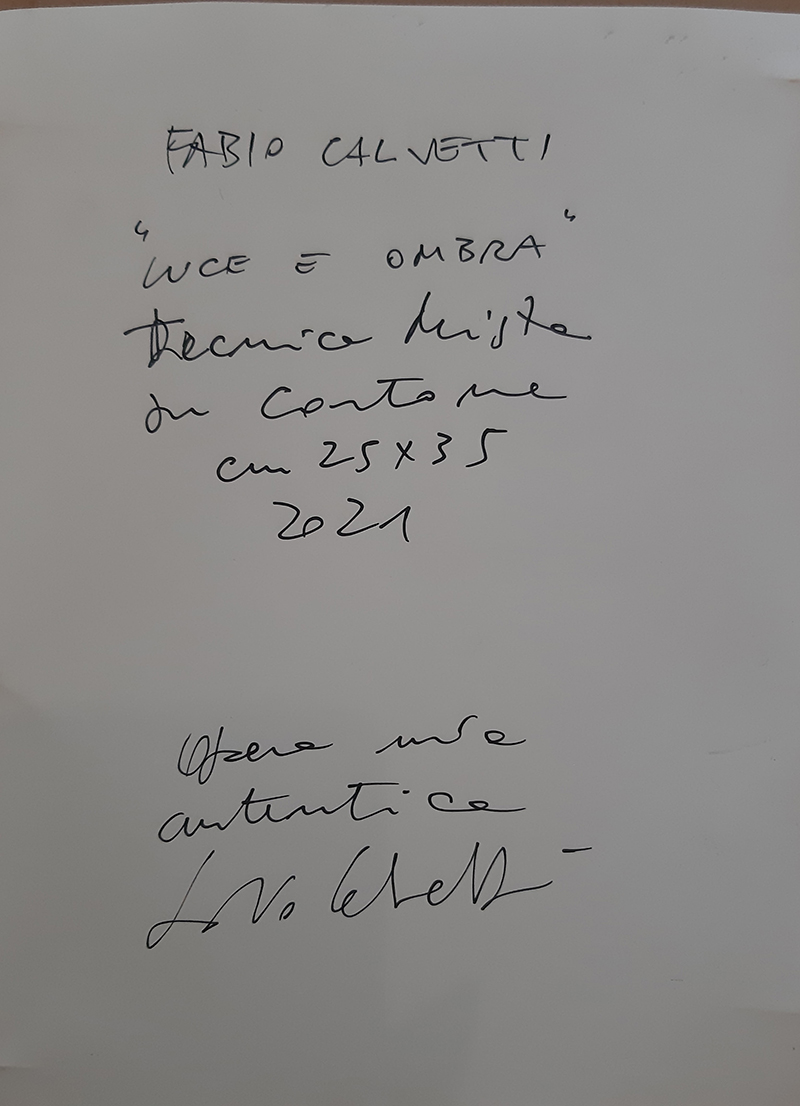 FABIO CALVETTI
"LUCE E OMBRA"
Tecnica Mista
su cartone
cm 25x35
2021
Opera mia
autentica
Fabio Calvetti